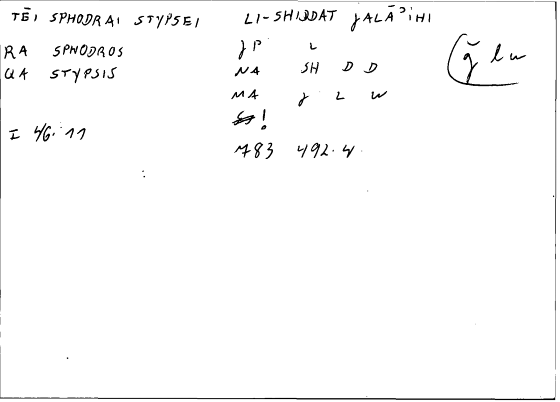 TĒI SPHODRAI STYPSEI LI-SHIDDAT JALĀʾIHI
RA SPHODROS JP L
QA STYPSIS NA SH D D
MA J L W
!
I 46.11
783 492.4
ǧ l w